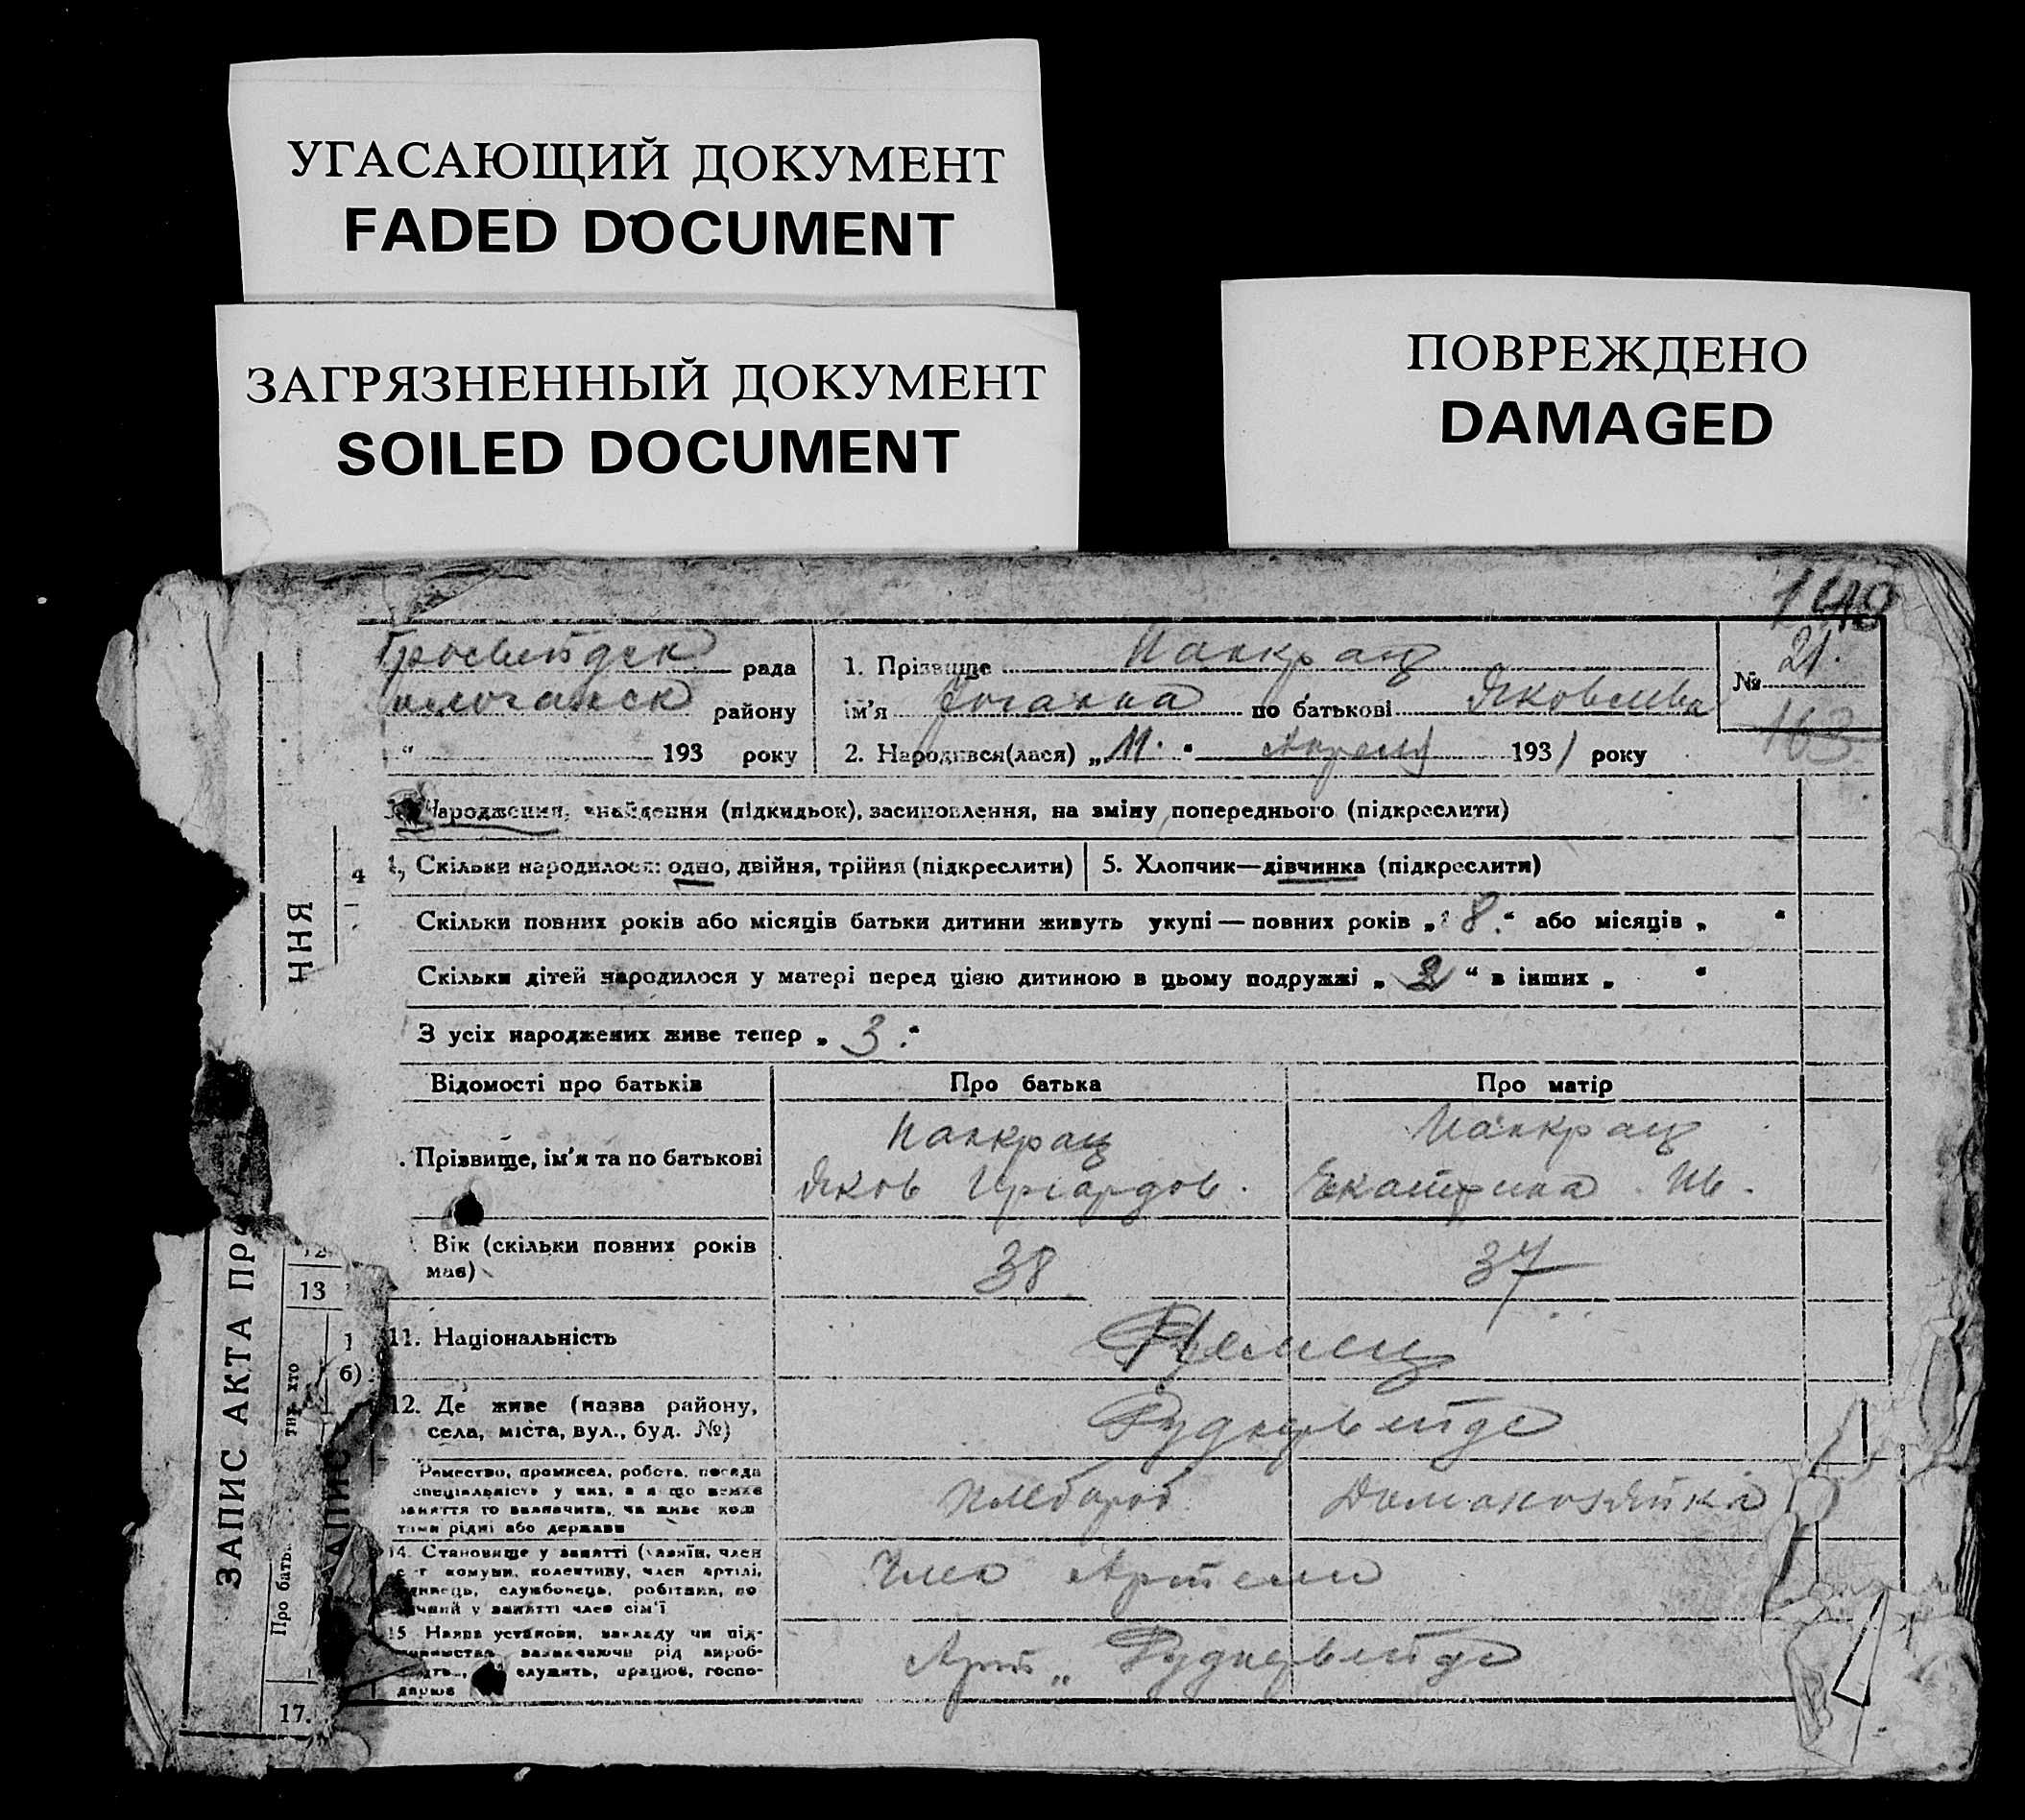 УГАСАЮЩИЙ ДОКУМЕНТ
FADED DOCUMENT
ЗАГРЯЗНЕННЫЙ ДОКУМЕНТ
SOILED DOCUMENT
ПОВРЕЖДЕНО
DAMAGED
рада
району
193 року
1. Прізвище Панкрац
ім'я Јоганна по батькові Яковлевна
2. Народився(лася) „11." Апреля 1931 року
№ 21.
163
Народження, знайдення (підкидьок), засиновлення, на зміну попереднього (підкреслити)
Скільки народилося: одно, двійня, трійня (підкреслити)
5. Хлопчик—дівчинка (підкреслити)
4
ННЯ
Скільки повних років або місяців батьки дитини живуть укупі — повних років „8." або місяців „ "
Скільки дітей народилося у матері перед цією дитиною в цьому подружжі „2" в інших „ "
З усіх народжених живе тепер „3."
Відомості про батьків Про батька Про матір
Прізвище, ім'я та по батькові
Панкрац
Яков
Панкрац
Екатерина Ив.
Вік (скільки повних років має)
38
37
11. Національність
Немец
12. Де живе (назва району,
села, міста, вул., буд. №)
Рудневейде
Ремество, промисел, робота, посада
спеціяльність у них, а якщо немає
заняття то зазначити, чи живе кош
тами рідні або держави
Хлебороб
Домахозяйка
14. Становище у занятті (хазяїн, член
комуни, колективу, член артілі,
службовець, робітник, по
у занятті член сім'ї
Член Артели
15 Назва установи, закладу чи під-
зазначаючи рід вироб-
служить, працює, госпо-
дарює
Арт „ Рудневейде
ЗАПИС АКТА ПРО
13
17.